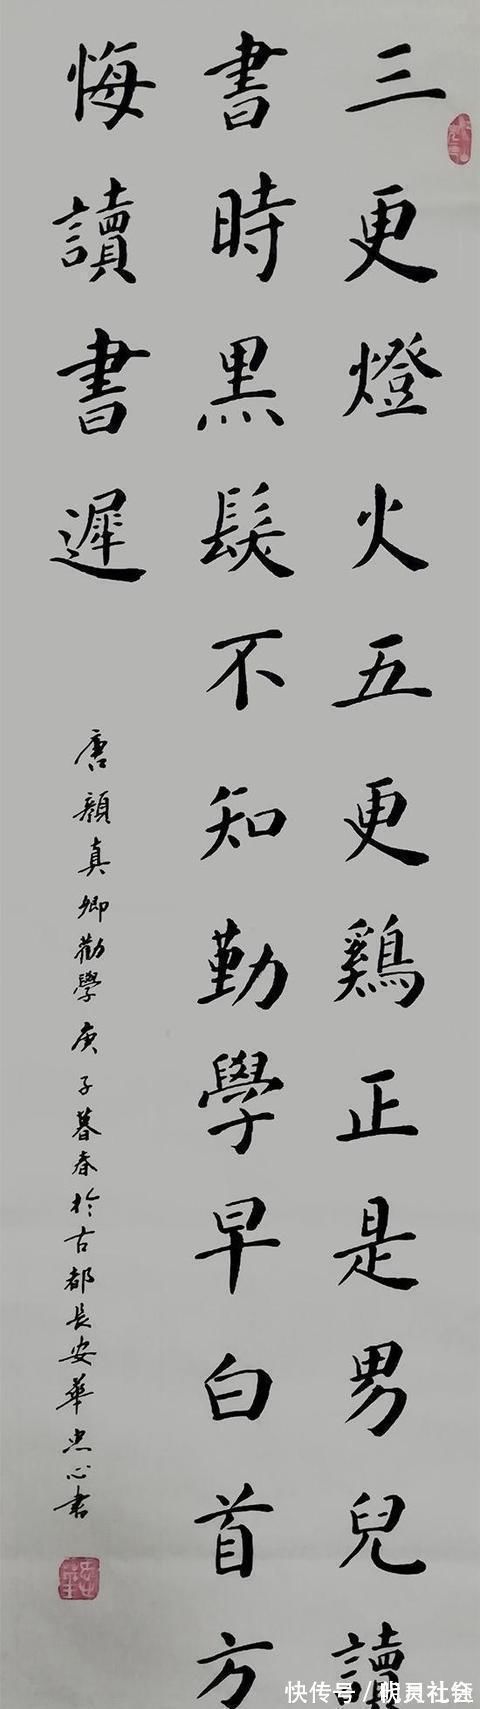 三更燈火五更鷄正是男兒讀
書時黑髮不知勤學早白首方
悔讀書遲
唐顏真卿勸學庚子暮春於古都長安華忠心書
快传号/